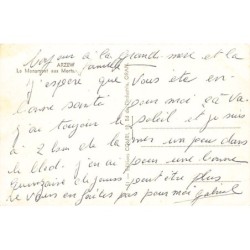 Bonjour à la grand mere et la
famille
ARZEW
Le Monument aux Morts
j'espere que vous éte en
bonne santé pour moi ça va
j'ai toujour le soleil et je suis
a 2 km de la mer un peu dans
le bled. j'en ai pour une bonne
quinzaine de jours peut étre plus
ne vous en faites pas pour moi gabriel